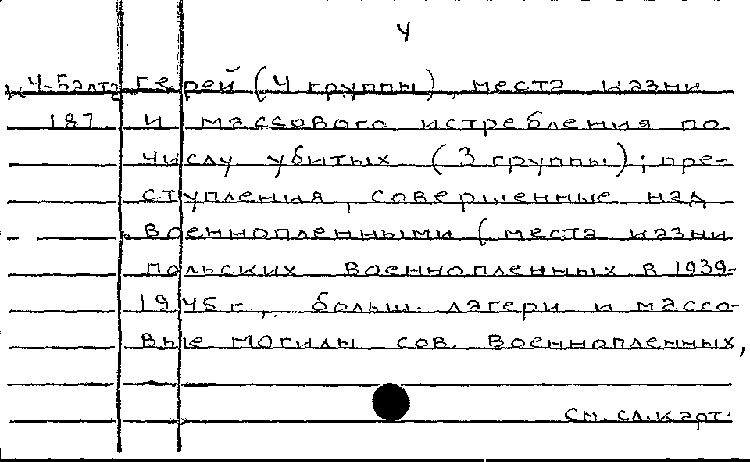 4
Ч-5алт герей (4 группы), места казни
187 и массового истребления по
числу убитых (3 группы); пре-
ступления, совершенные над
военнопленными (места казни
польских военнопленных в 1939-
1945 г., больш. лагери и массо-
вые могилы сов. военнопленных,
см. сл. карт.